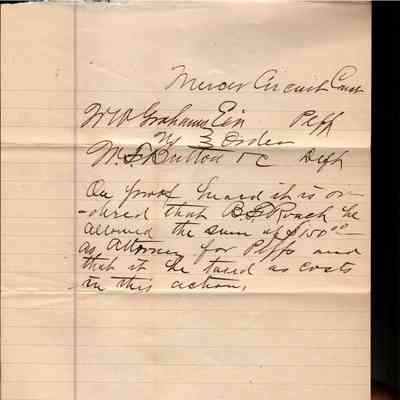 Mercer Circuit Court
W W Grahams Exr Plff
Vs } Order
W. S. Dutton &c Deft
On proof heard it is or
-dered that B. F. Roach be
allowed the sum of $150.00
as Attorney for Plffs and
that it be taxed as costs
in this action.